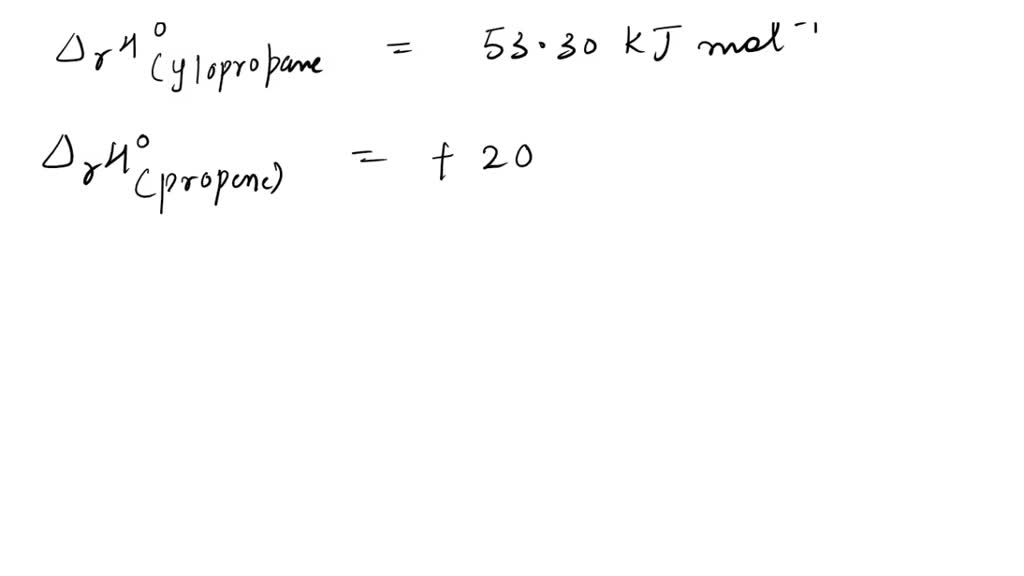 Δr H° Cylopropane = 53.30 KJ mol⁻¹
Δr H° (propene) = + 20